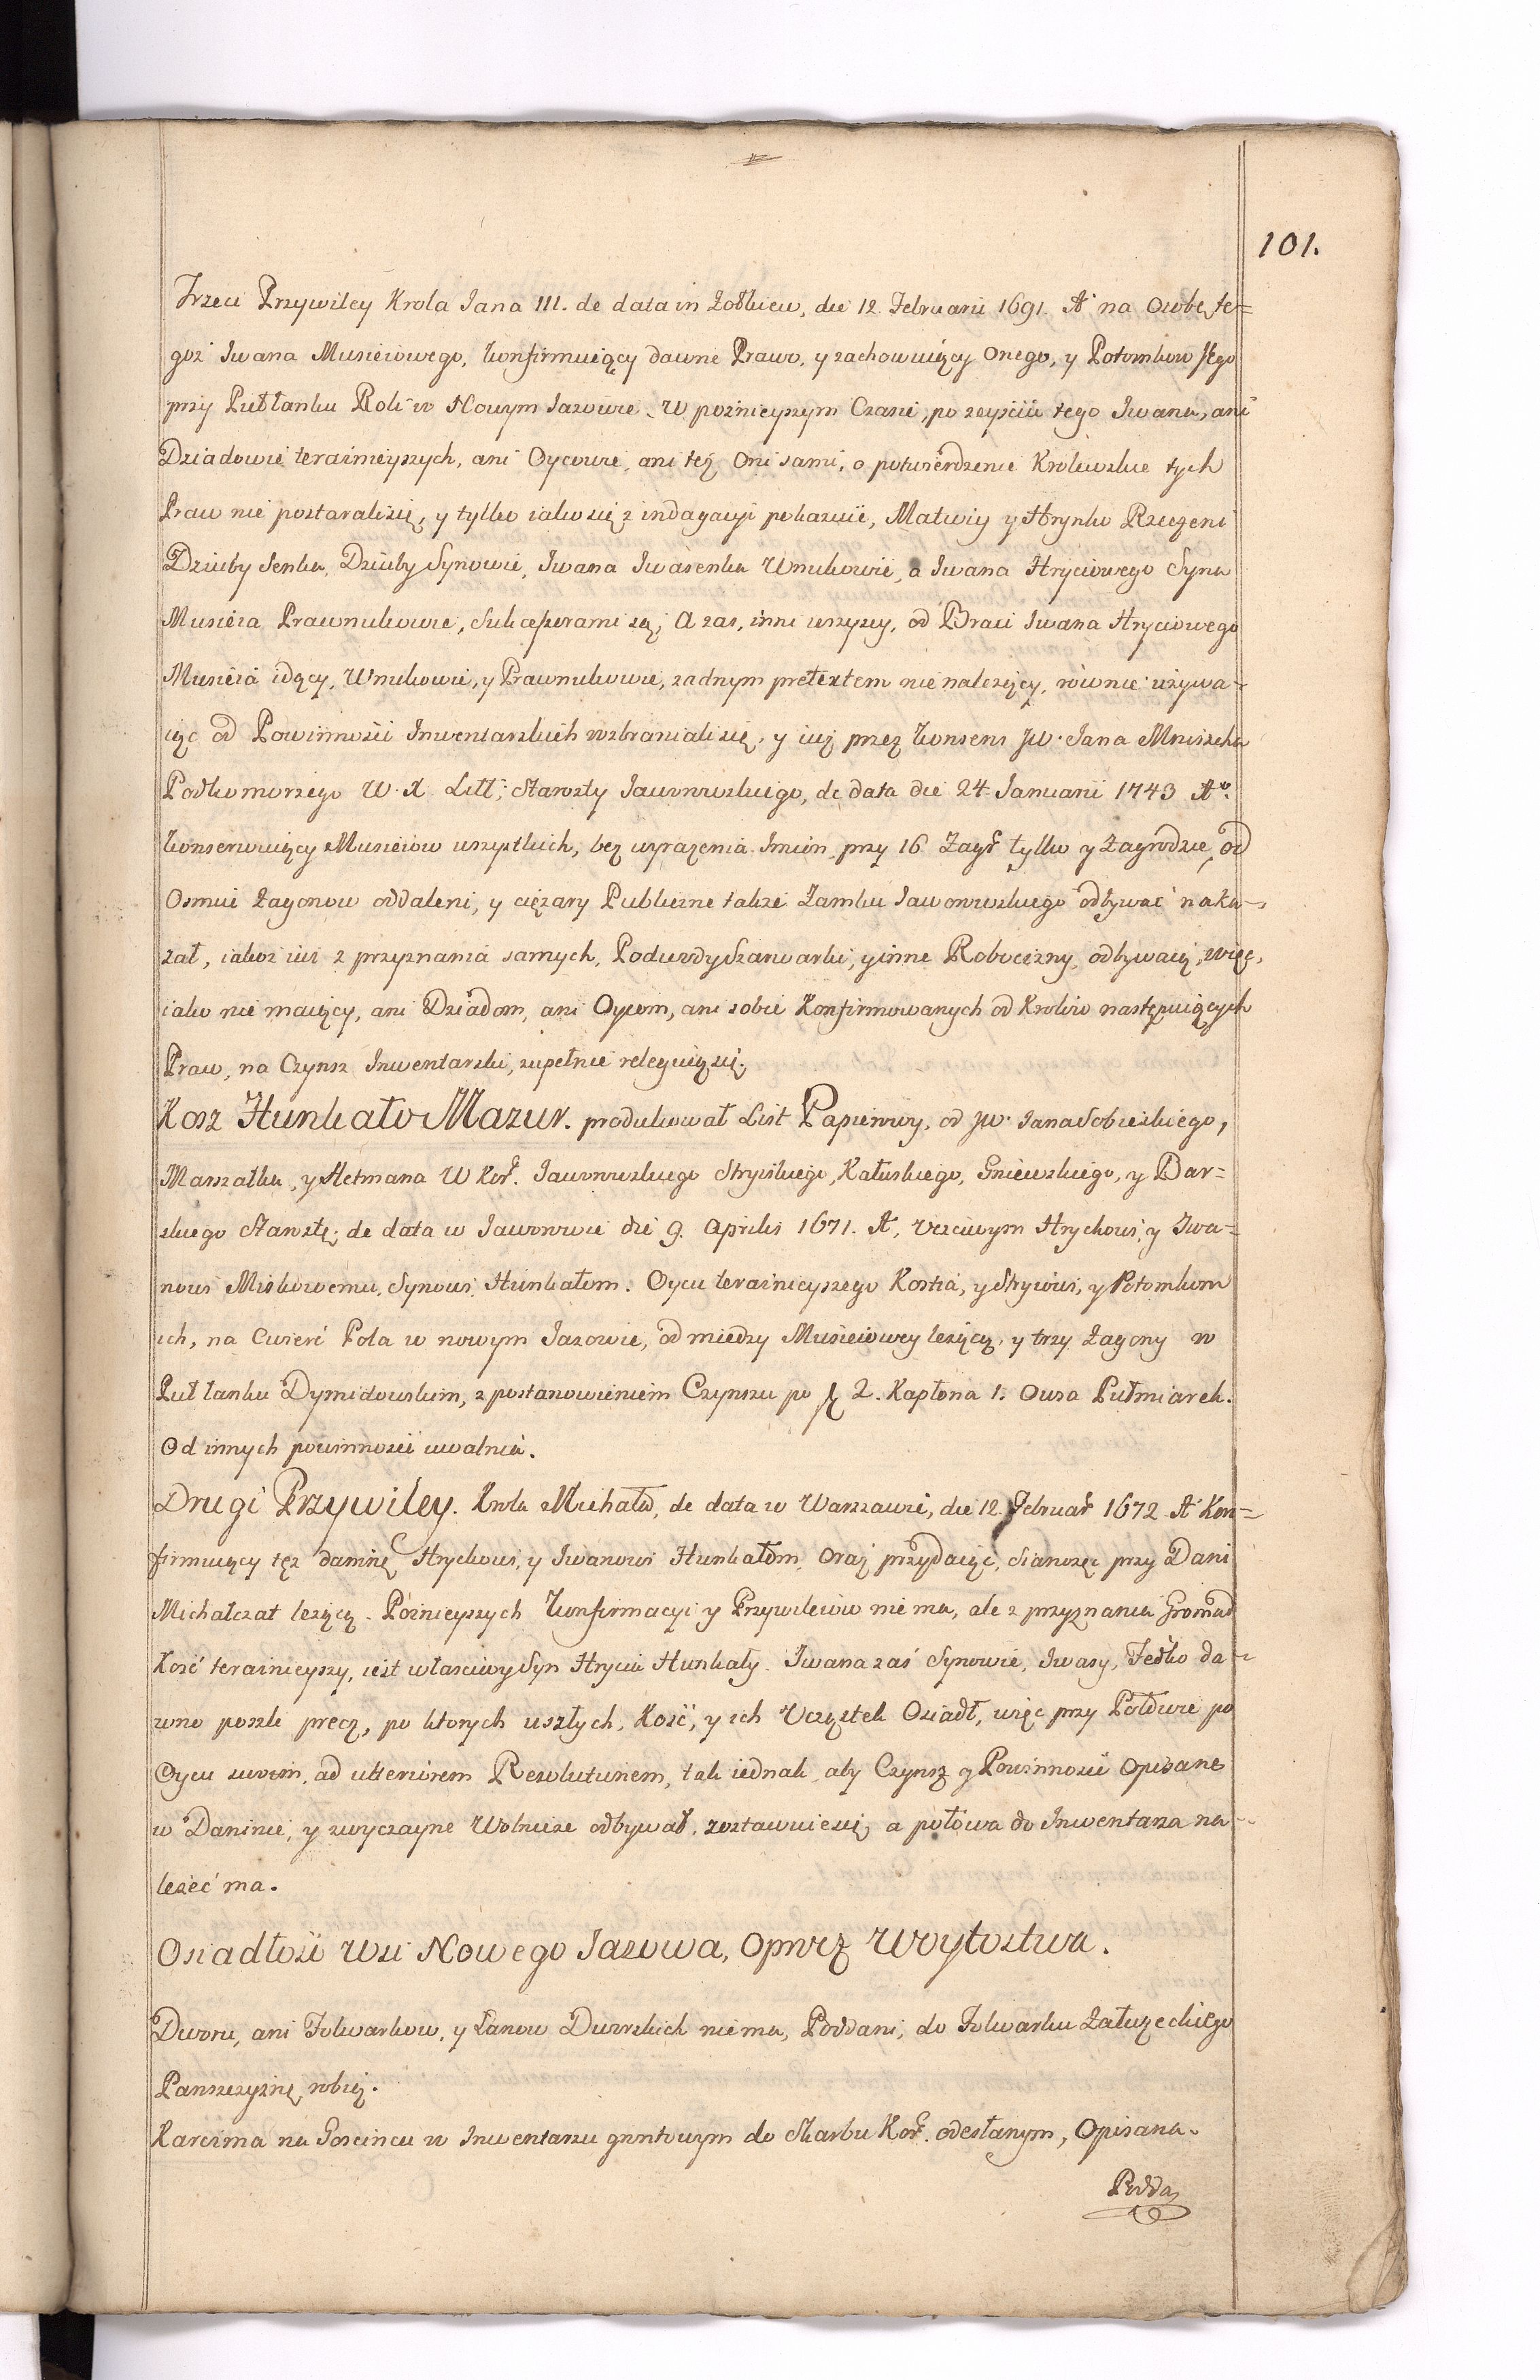 101.
Trzeci Przywiley Krola Jana III. de data in Zołkiew, die 12. Februarii 1691. A° na Osobę te=
goz Iwana Musieiowego, konfirmuiący dawne Prawo, y zachowuiący Onego, y Potomkow Jego
przy Pułłanku Roli w Nowym Jazowie. W poźnieyszym Czasie, po zeyściu tego Iwana, ani
Dziadowie teraźnieyszych, ani Oycowie, ani też Oni sami, o potwierdzenie Krolewskie tych
Praw nie postaralisię, y tylko iako się z indagacyi pokazuie, Matwiy y Hrynko Rzeczeni
Dziuby Senka, Dziuby Synowie, Iwana Iwasenka Wnukowie, a Iwana Hryciowego Syna
Musieia Prawnukowie, Sukcessorami są; A zas, inni wszyscy, od Braci Iwana Hryciowego
Musieia idący, Wnukowie, y Prawnukowie, zadnym pretextem nie nalezący, rownie używa=
iąc od Powinności Inwentarskich wzbraniali się, y iuż przez konsens JW. Jana Mniszcha
Podkomorzego W. X. Litt; Starosty Jaworowskiego, de data die 24. Januarii 1743 A°.
konserwuiący Musieiow wszystkich, bez wyrażenia Imion, przy 16 Zagỏ tylko y Zagrodzie, od
Osmiu Zagonow oddaleni, y ciężary Publiczne także Zamku Jaworowskiego odbywać naka=
zał, iakoż iuż z przyznania samych, Podwody Szarwarki, y inne Robocizny, odbywaią, więc,
iako nie maiący, ani Dziadom, ani Oycom, ani sobie Konfirmowanych od Krolow następuiących
Praw, na Czynsz Inwentarski, zupełnie releguią się.
Kosz Hunkało Mazur. produkował List Papierowy, od JW. Jana Sobieskiego,
Marszałka, y Hetmana W Kor. Jaworowskiego Stryiskiego, Kałuskiego, Gniewskiego, y Bar=
skiego Starostę; de data w Jaworowie die 9. Aprilis 1671. A°, Uczciwym Hrychowi, y Iwa=
nowi Miskowemu, Synowi Hunkałom. Oycu teraźnieyszego Kostia, y Stryiowi, y Potomkom
ich, na Cwierć Pola w nowym Jazowie, od miedzy Musieiowey leżącą, y trzy Zagony w
Pułłanku Dymidowskim, z postanowieniem Czynszu po fl 2. Kapłona 1. Owsa Pułmiarek.
Od innych powinności uwalnia.
Drugi Przywiley. Krola Michała, de data w Warszawie, die 12. Februar 1672 A° Kon=
firmuiący tęż daninę Hrychowi, y Iwanowi Hunkałom, Oraz przydaiąc, Sianożęc przy Dani
Michałczat leżącą. Poźnieyszych konfirmacyi y Przywilejow nie ma, ale z przyznania Gromad
Kość teraźnieyszy, iest własciwy Syn Hrycia Hunkały. Iwana zaś Synowie, Iwasy, Fedko da=
wno poszli precz, po ktorych uszłych, Kość, y ich Uczęstek Osiadł, więc przy Połowie po
Oycu swoim, ad ulteriorem Resolutionem, tak iednak, aby Czynsz y Powinności Opisane
w Daninie, y zwyczayne Wolnicze odbywał, zostawuie się, a połowa do Inwentarza na=
leżeć ma.
Osiadłość Wsi Nowego Jazowa, Oprocz Woytostwa.
Dworu, ani Folwarkow, y Łanow Dworskich niema, Poddani, do Folwarku Załuzeckiego
Panszczyznę robią.
Karczma na Gościncu w Inwentarzu gruntowym do Skarbu Kor. odesłanym, Opisana.
Podda